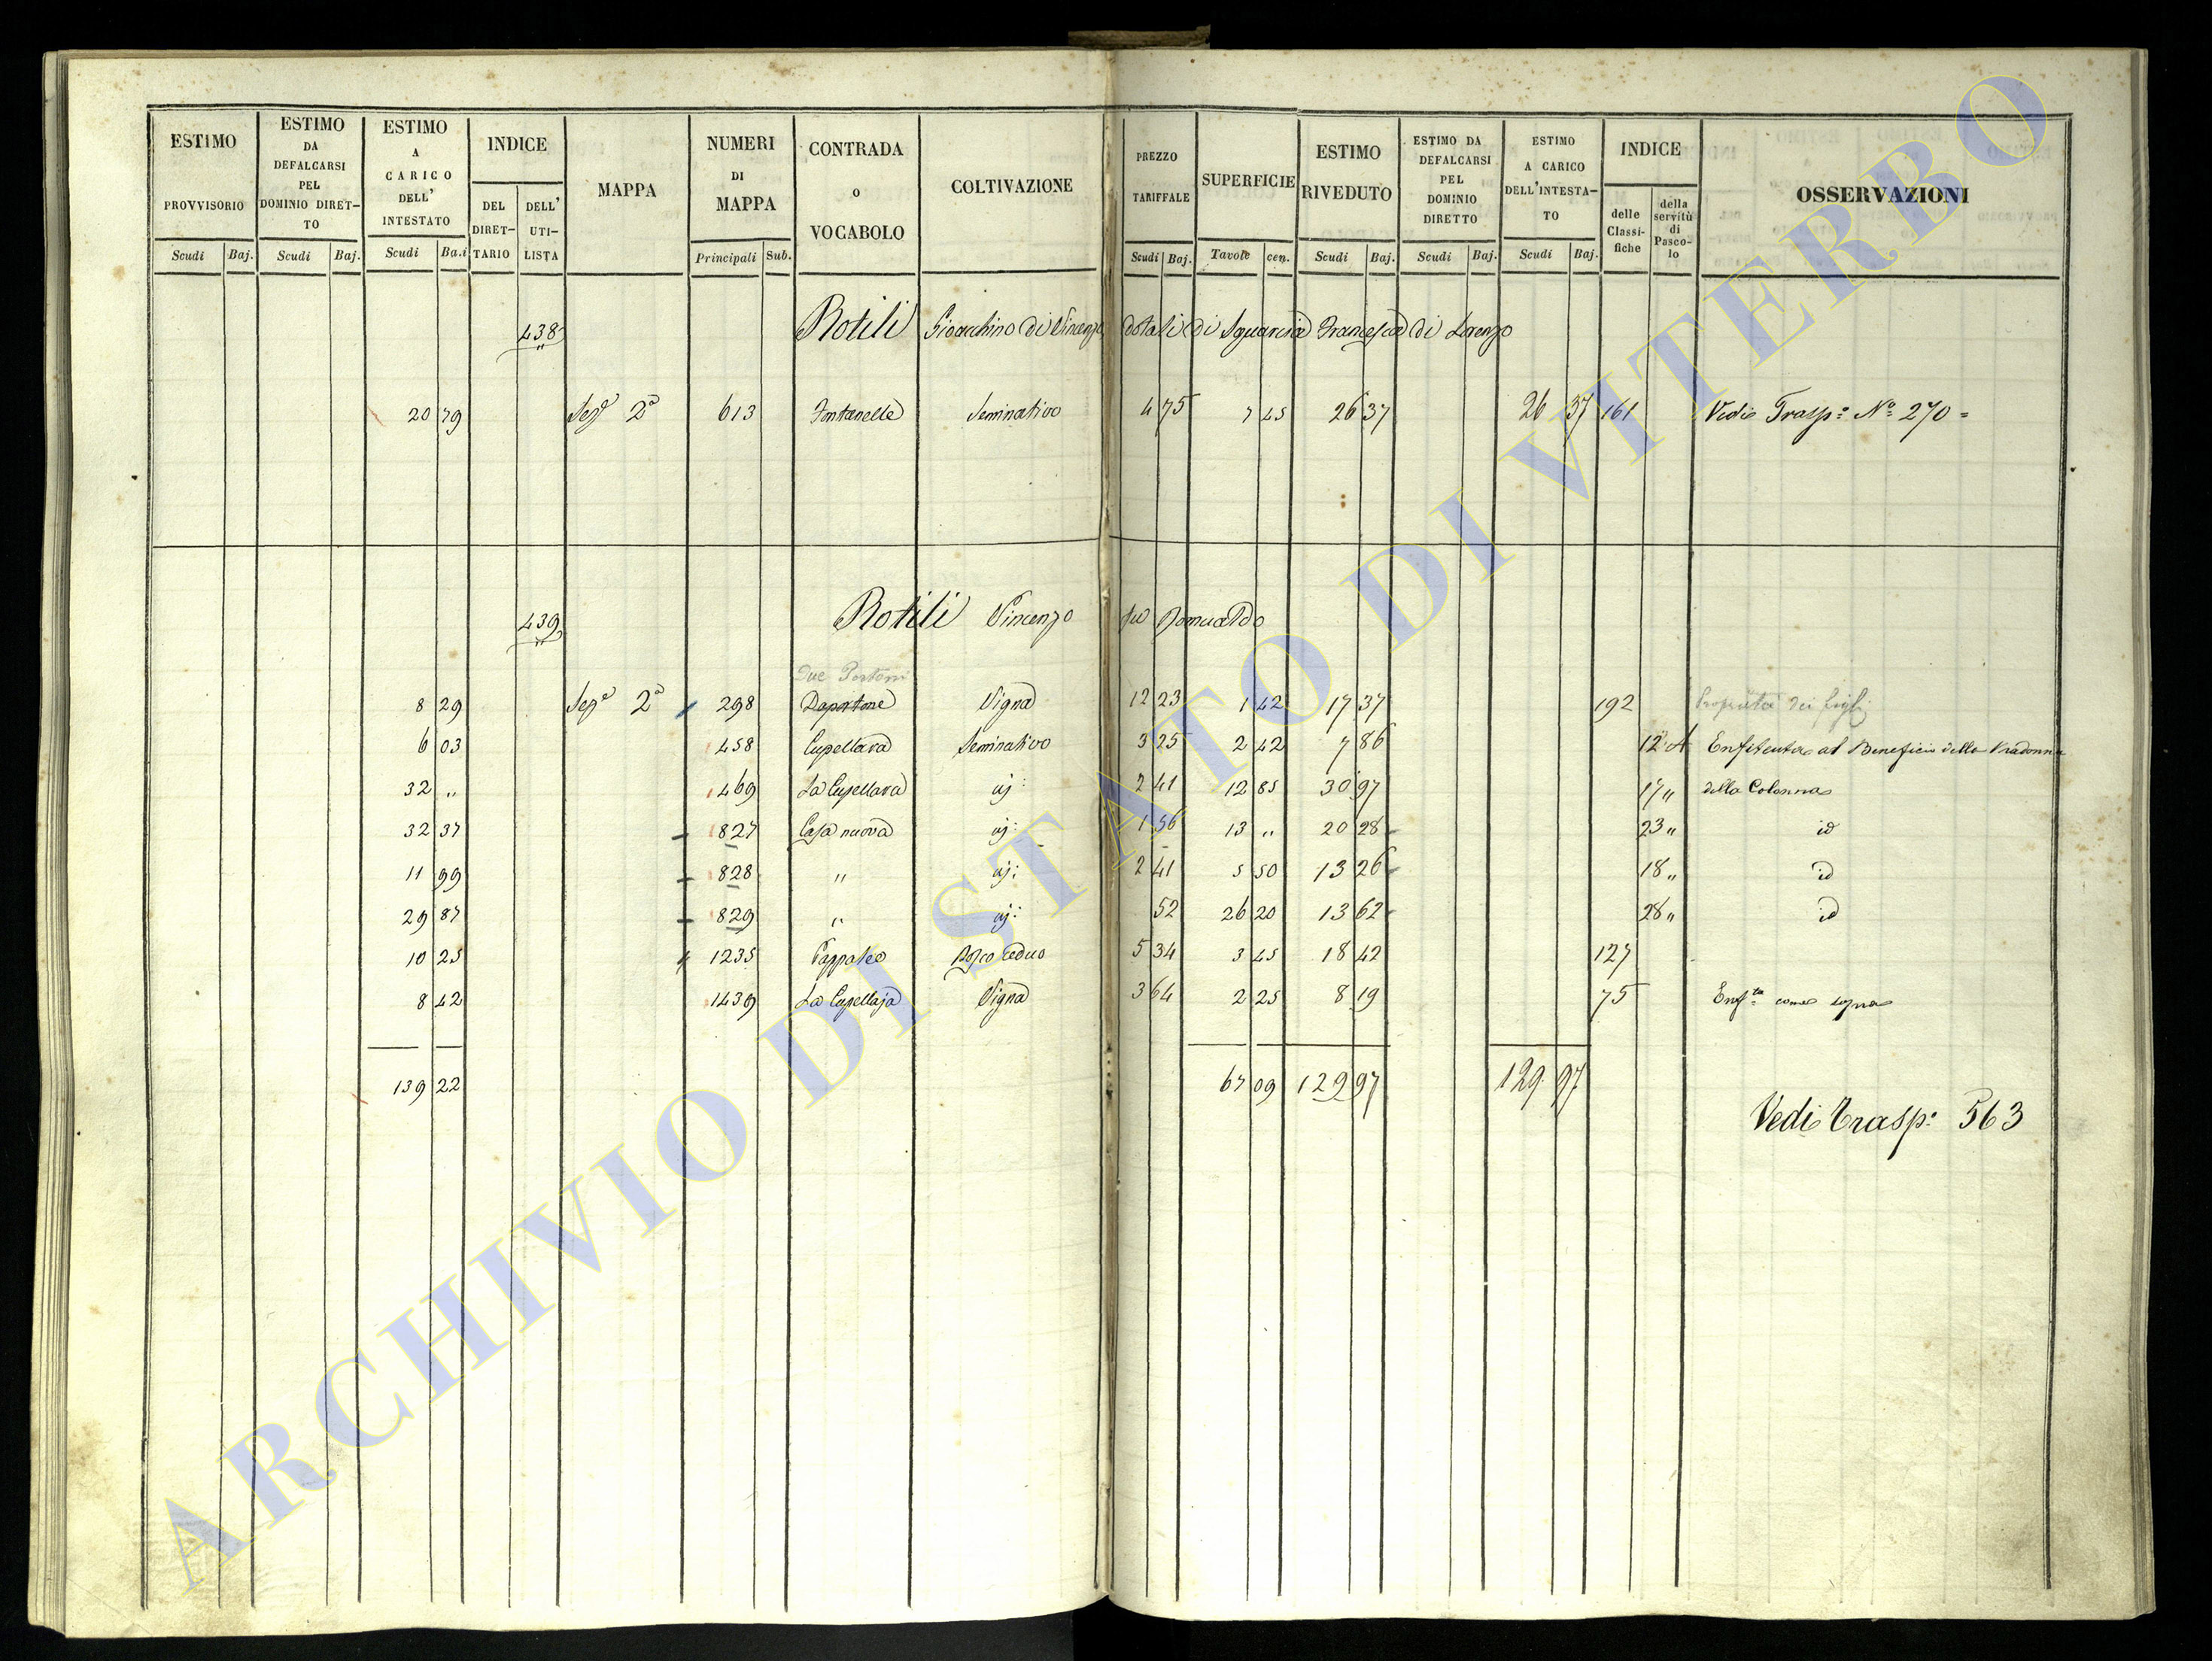 ESTIMO PROVVISORIO Scudi Baj.
ESTIMO DA DEFALCARSI PEL DOMINIO DIRET-TO Scudi Baj.
ESTIMO A CARICO DELL' INTESTATO Scudi Ba.i
INDICE DEL DIRET-TARIO DELL' UTI-LISTA
MAPPA
NUMERI DI MAPPA Principali Sub.
CONTRADA O VOCABOLO
COLTIVAZIONE
PREZZO TARIFFALE Scudi Baj.
SUPERFICIE Tavole cen.
ESTIMO RIVEDUTO Scudi Baj.
ESTIMO DA DEFALCARSI PEL DOMINIO DIRETTO Scudi Baj.
ESTIMO A CARICO DELL'INTESTA-TO Scudi Baj.
INDICE delle Classi-fiche della servitù di Pasco-lo
OSSERVAZIONI
438 Rotili Gioacchino di Vincenzo dotali di Squarcia Francesca di Lorenzo
20 79 Sez.e 2a 613 Fontanelle Seminativo 4 75 7 45 26 37 26 37 161 Vedi Trasp: No 270 =
439 Rotili Vincenzo fu Romualdo
Due Portoni
8 29 Sez.e 2a 298 Daportone Vigna 12 23 1 42 17 37 192 Proprietà dei figli
6 03 458 Cupellara Seminativo 3 25 2 42 7 86 12 A Enfiteutica al Beneficio della Madonna
32 „ 469 La Cupellara id: 2 41 12 85 30 97 17 „ della Colonna
32 37 827 Casa nuova id: 1 56 13 „ 20 28 23 „ id
11 99 828 „ id: 2 41 5 50 13 26 18 „ id
29 87 829 „ id: 52 26 20 13 62 28 „ id
10 25 1235 Pappaleo Bosco ceduo 5 34 3 45 18 42 127
8 42 1439 La Cupellaja Vigna 3 64 2 25 8 19 75 Enf.ta come sopra
139 22 67 09 129 97 129 97
Vedi Trasp: 563
ARCHIVIO DI STATO DI VITERBO